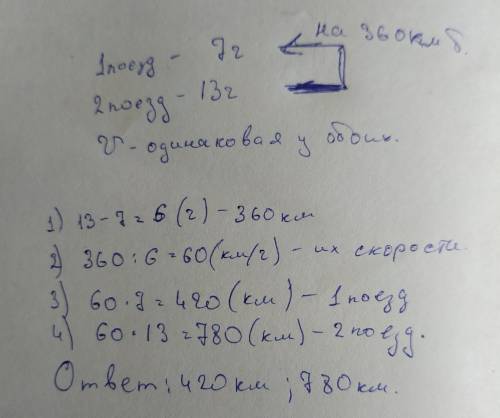 на 360 км б.
1 поезд - 7 г
2 поезд - 13 г
V - одинаковая у обоих.
1) 13 - 7 = 6 (г) - 360 км
2) 360 : 6 = 60 (км/г) - их скорости
3) 60 · 7 = 420 (км) - 1 поезд
4) 60 · 13 = 780 (км) - 2 поезд.
Ответ: 420 км ; 780 км.